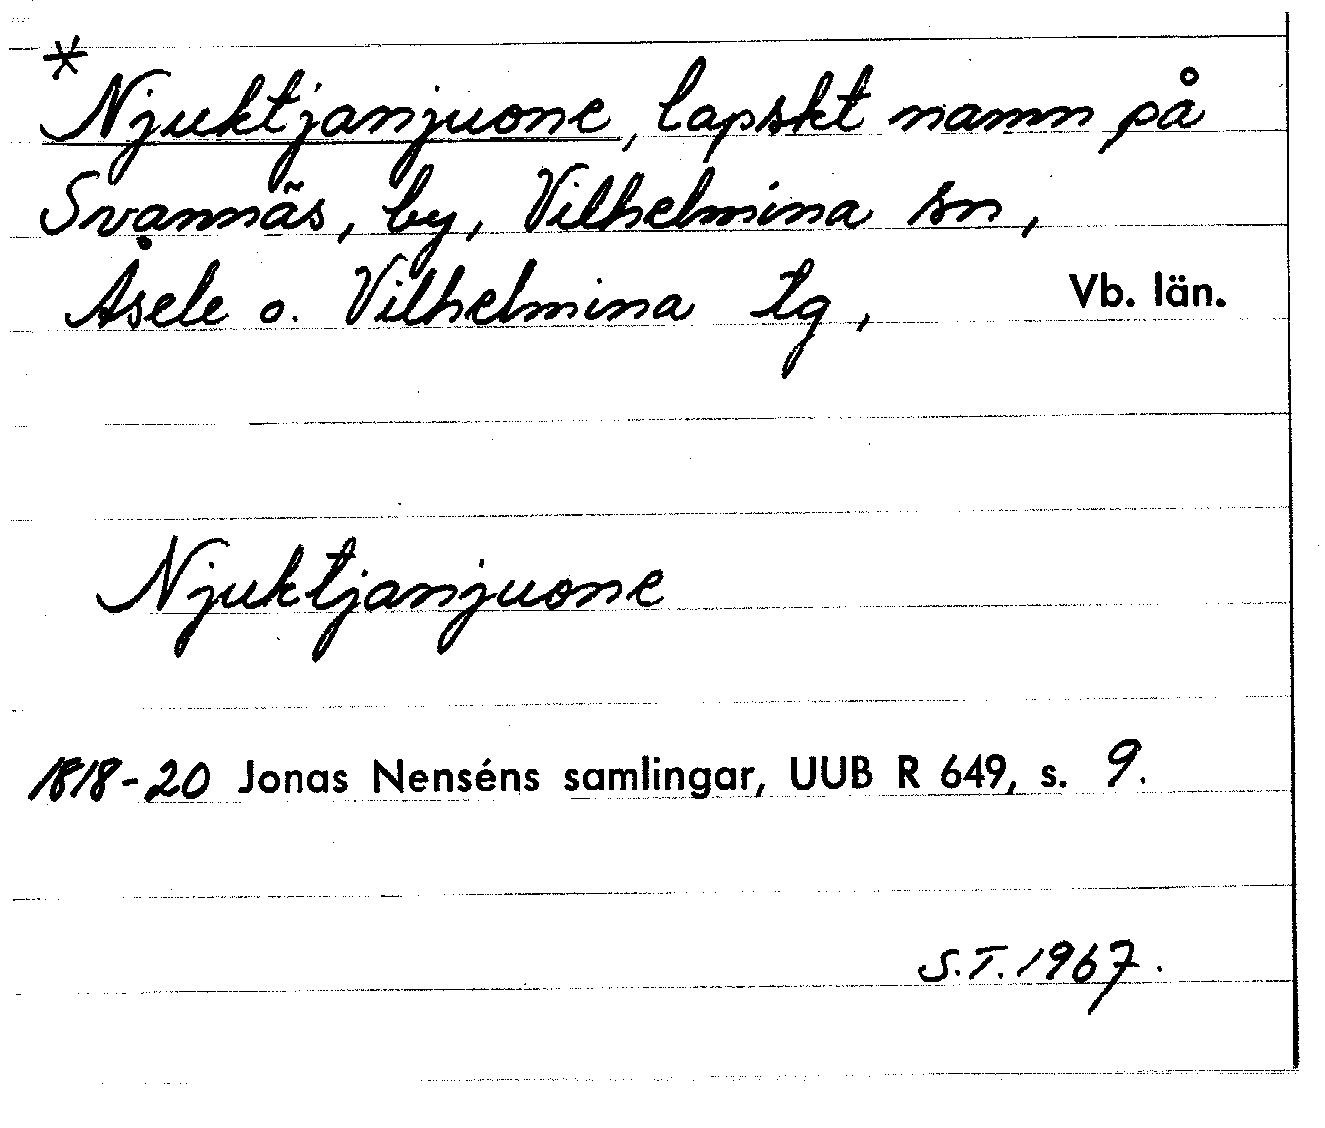 * Njuktjanjuone, lapskt namn på
Svannäs, by, Vilhelmina sn,
Åsele o. Vilhelmina tg, Vb. län.
Njuktjanjuone
1818-20 Jonas Nenséns samlingar, UUB R 649, s. 9.
S.T. 1967.